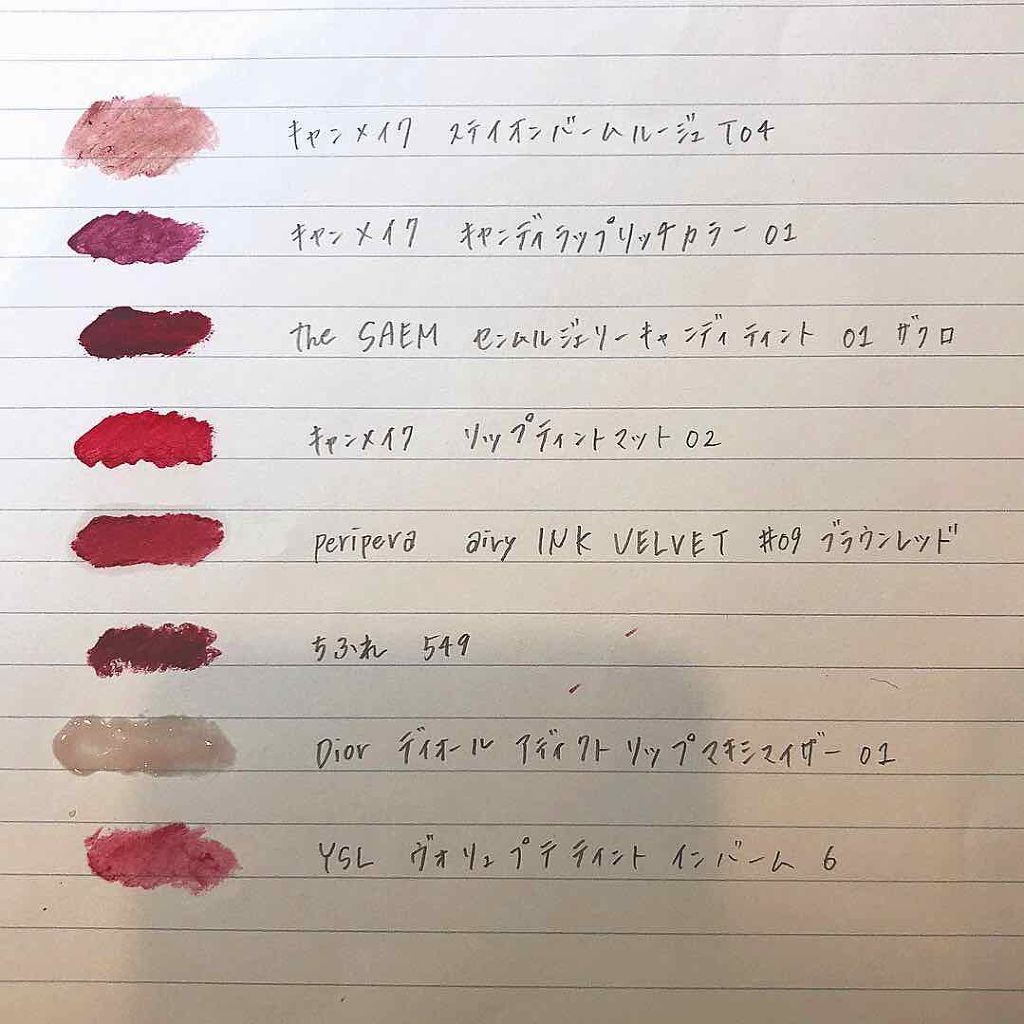 キャンメイク ステイオンバームルージュ T04
キャンメイク キャンディラップリッチカラー 01
the SAEM センムルジェリーキャンディティント 01 ザクロ
キャンメイク リップティントマット 02
peripera airy INK VELVET #09 ブラウンレッド
ちふれ 549
Dior ディオール アディクト リップマキシマイザー 01
YSL ヴォリュプテ ティント インバーム 6